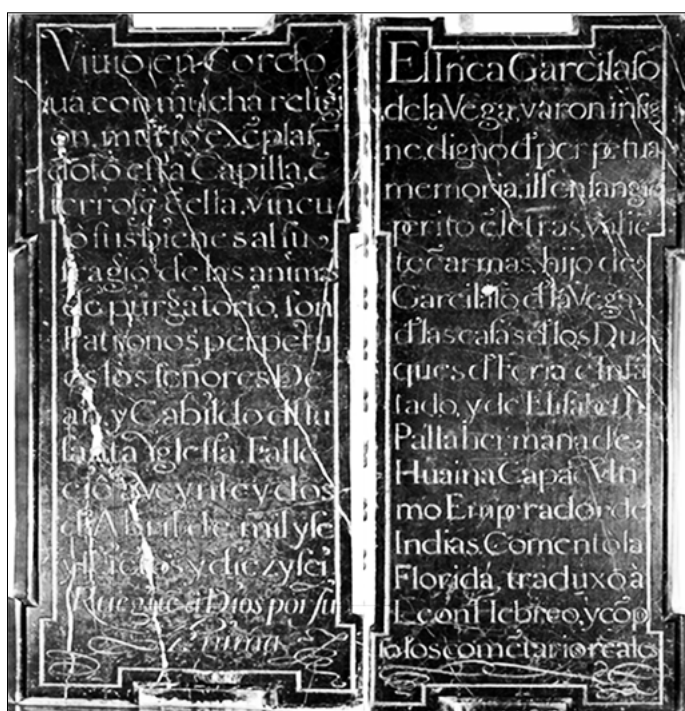 Viuio en Cordo
ua, con mucha religi
on, murio exẽplar,
doto eſta Capilla, e
terroſe ẽ ella, vincu
lo ſus bienes al ſu
fragio de las anima
de purgatorio, ſon
Patronos perpetu
os los ſeñores De
an, y Cabildo dſta
ſanta Ygleſia. Falle
cio a veynte y dos
d Abril de mil y ſe
yſcietos y diez y ſei
Ruegue a Dios por ſu
anima
El Inca Garcilaſo
de la Vega, varon inſig
ne, digno d' perpetua
memoria, ill' en ſangre
perito ẽ letras, valiẽ
te ẽ armas, hijo de
Garcilaſo d' la Vega
d' las caſas d' los Du
ques d' Feria e Infã
tado, y de Eliſabeth
Palla hermana de
Huaina Capac Vlti
mo Emperador de
Indias. Comento la
Florida, traduxo à
Leon Hebreo, y cõp
uſo los cometario reales